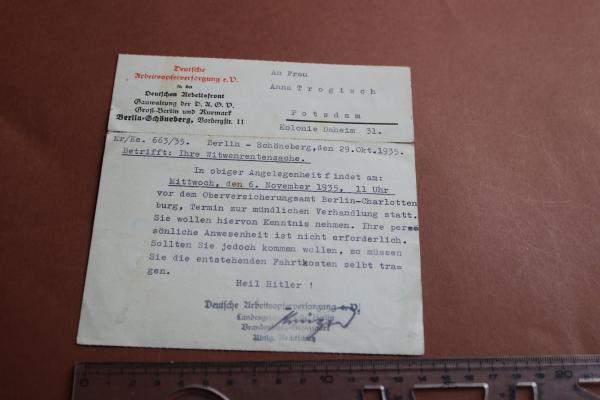 Deutsche
Arbeitsopferversorgung e.V.
in der
Deutschen Arbeitsfront
Gauwaltung der D.A.O.V.
Groß-Berlin und Kurmark
Berlin-Schöneberg, Vorbergstr. 11
An Frau
Anna Trogisch
Potsdam
Kolonie Daheim 31.
Kr/Ke. 663/35. Berlin - Schöneberg, den 29.Okt.1935.
Betrifft: Ihre Witwenrentensache.
In obiger Angelegenheit findet am:
Mittwoch, den 6. November 1935, 11 Uhr
vor dem Oberversicherungsamt Berlin-Charlotten
burg, Termin zur mündlichen Verhandlung statt.
Sie wollen hiervon Kenntnis nehmen. Ihre per
sönliche Anwesenheit ist nicht erforderlich.
Sollten Sie jedoch kommen wollen, so müssen
Sie die entstehenden Fahrtkosten selbt tra-
gen.
Heil Hitler !
Deutsche Arbeitsopferversorgung e.V.
Abtlg. Rechtsschutz
0 1 2 3 4 5 6 7 8 9 10 11 12 13 14 15 16 17 18 19 20